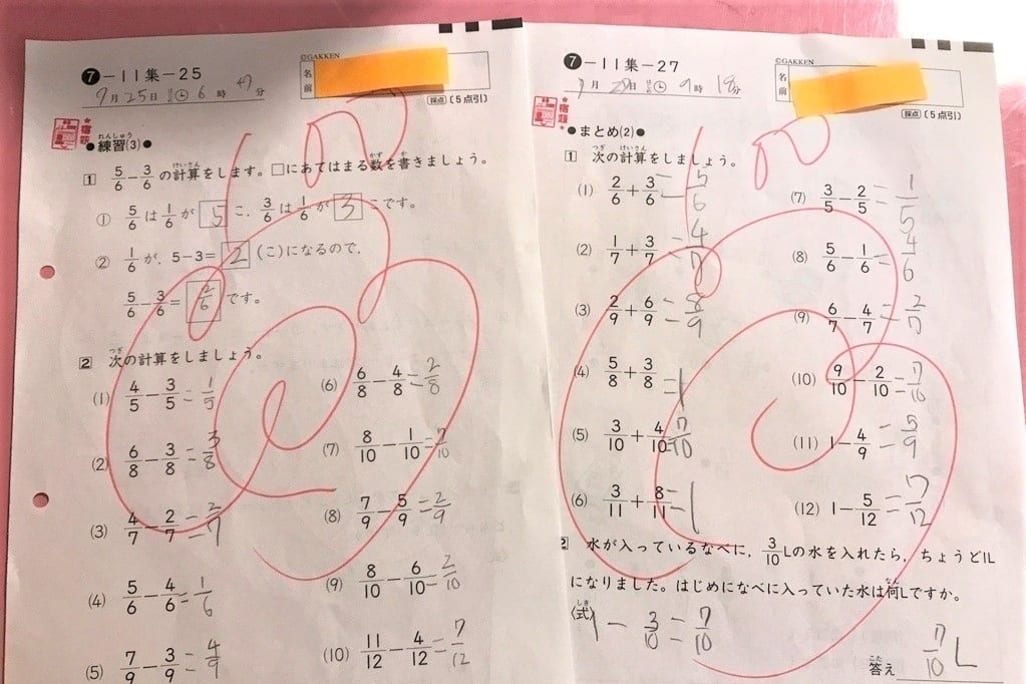 ©GAKKEN
❼-11集-25
名前
9月25日 6時47分
採点 〔5点引〕
宿題
●練習(3)●
れんしゅう
1 5/6-3/6の計算をします。□にあてはまる数を書きましょう。
けいさん かず か
① 5/6は1/6が 5 こ, 3/6は1/6が 3 こです。
② 1/6が, 5-3= 2 (こ)になるので,
5/6-3/6= 2/6 です。
2 次の計算をしましょう。
つぎ
(1) 4/5-3/5=1/5
(2) 6/8-3/8=3/8
(3) 4/7-2/7=2/7
(4) 5/6-4/6=1/6
(5) 7/9-3/9=4/9
(6) 6/8-4/8=2/8
(7) 8/10-1/10=7/10
(8) 7/9-5/9=2/9
(9) 8/10-6/10=2/10
(10) 11/12-4/12=7/12
100
©GAKKEN
❼-11集-27
名前
9時18分
採点 〔5点引〕
宿題
●まとめ(2)●
1 次の計算をしましょう。
つぎ けいさん
(1) 2/6+3/6=5/6
(2) 1/7+3/7=4/7
(3) 2/9+6/9=8/9
(4) 5/8+3/8=1
(5) 3/10+4/10=7/10
(6) 3/11+8/11=1
(7) 3/5-2/5=1/5
(8) 5/6-1/6=4/6
(9) 6/7-4/7=2/7
(10) 9/10-2/10=7/10
(11) 1-4/9=5/9
(12) 1-5/12=7/12
2 水が入っているなべに, 3/10Lの水を入れたら, ちょうど1L
になりました。はじめになべに入っていた水は何Lですか。
なん
〈式〉 1-3/10=7/10
しき
答え 7/10 L
こた
100